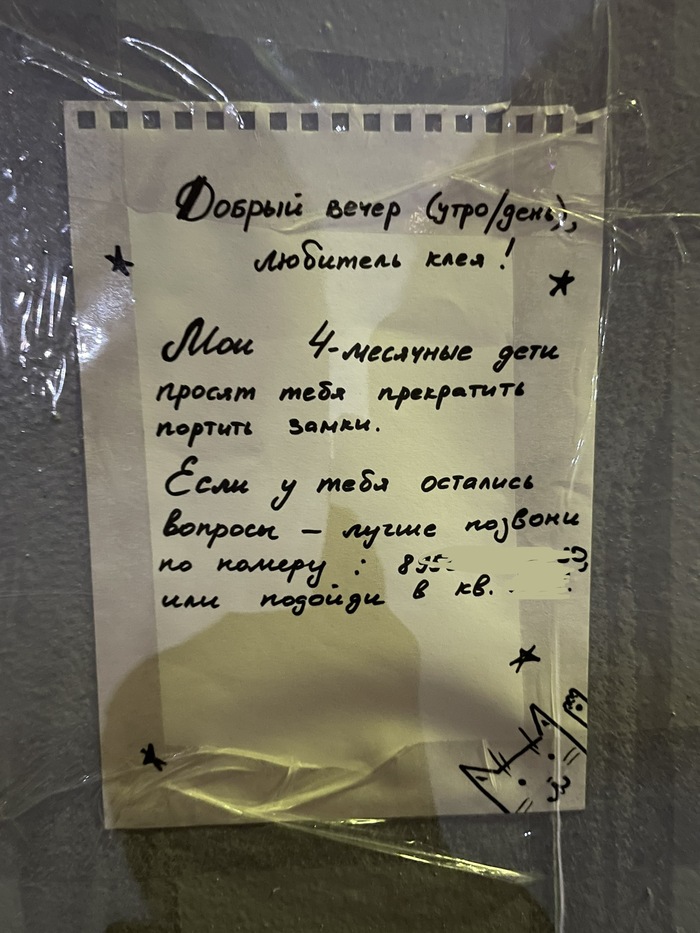 Добрый вечер (утро/день),
любитель клея!
Мои 4-месячные дети
просят тебя прекратить
портить замки.
Если у тебя остались
вопросы — лучше позвони
по номеру :
или подойди в кв.